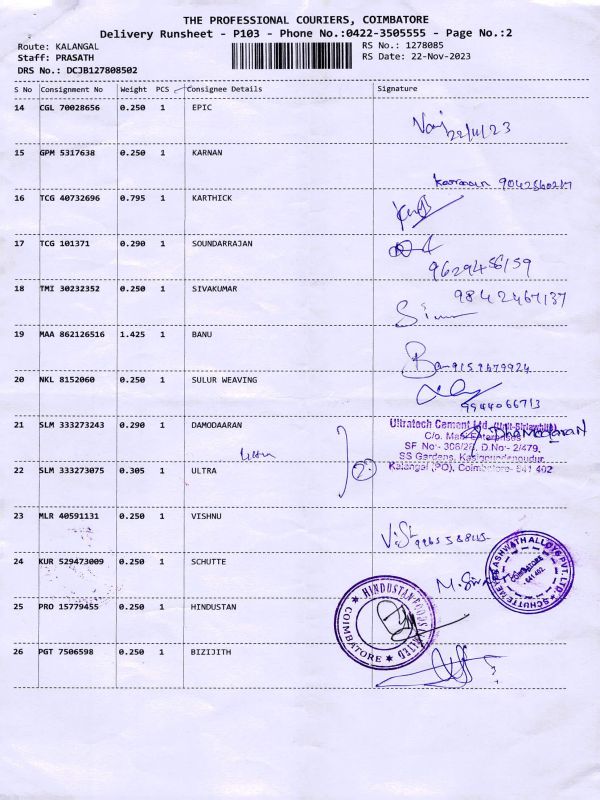 THE PROFESSIONAL COURIERS, COIMBATORE
Delivery Runsheet - P103 - Phone No.:0422-3505555 - Page No.:2
Route: KALANGAL RS No.: 1278085
Staff: PRASATH RS Date: 22-Nov-2023
DRS No.: DCJB127808502
S No Consignment No Weight PCS Consignee Details Signature
14 CGL 70028656 0.250 1 EPIC
22/11/23
15 GPM 5317638 0.250 1 KARNAN
16 TCG 40732696 0.795 1 KARTHICK
17 TCG 101371 0.290 1 SOUNDARRAJAN
18 TMI 30232352 0.250 1 SIVAKUMAR
9842467137
19 MAA 862126516 1.425 1 BANU
20 NKL 8152060 0.250 1 SULUR WEAVING
9944066713
21 SLM 333273243 0.290 1 DAMODAARAN
Ultratech Cement Ltd.
C/o.
SS Gardens,
Kalangal (PO), Coimbatore- 641 402
22 SLM 333273075 0.305 1 ULTRA
23 MLR 40591131 0.250 1 VISHNU
24 KUR 529473009 0.250 1 SCHUTTE
COIMBATORE
641 402
25 PRO 15779455 0.250 1 HINDUSTAN
HINDUSTAN
COIMBATORE
26 PGT 7506598 0.250 1 BIZIJITH